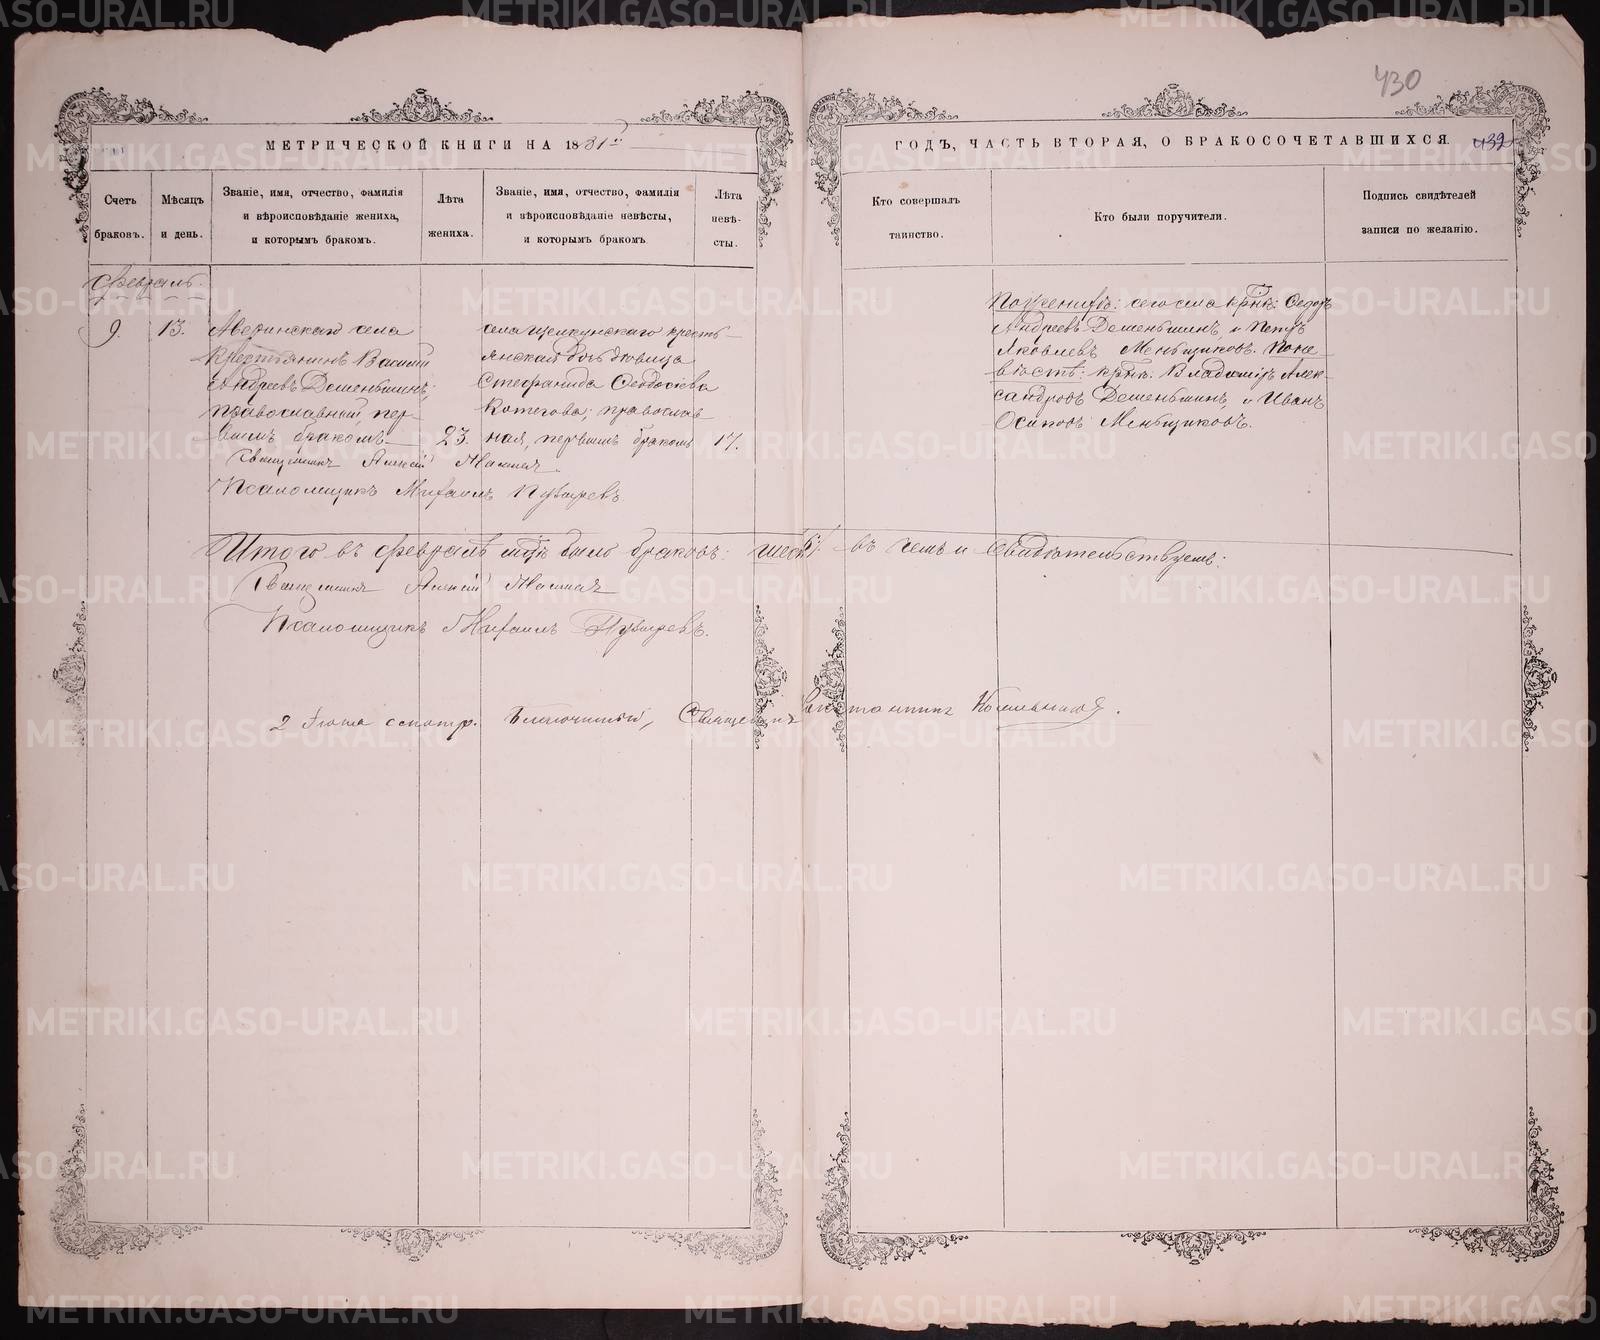 430
МЕТРИЧЕСКОЙ КНИГИ НА 1881й
ГОДЪ, ЧАСТЬ ВТОРАЯ, О БРАКОСОЧЕТАВШИХСЯ.
Счетъ браковъ.
Мѣсяцъ и день.
Званіе, имя, отчество, фамилія и вѣроисповѣданіе жениха, и которымъ бракомъ.
Лѣта жениха.
Званіе, имя, отчество, фамилія и вѣроисповѣданіе невѣсты, и которымъ бракомъ
Лѣта невѣсты.
Кто совершалъ таинство.
Кто были поручители.
Подпись свидѣтелей записи по желанію.
Февраль.
9.
13.
Аверинскаго села
крестьянинъ Василій
Андреевъ Деменьшинъ,
православный, пер-
вымъ бракомъ
23.
села Щелкунскаго кресть-
янская дѣвица
Стефанида Ѳеодосіева
Котегова, православ
ная, первымъ бракомъ
17.
По женихѣ: сего села крест: Ѳедоръ
Андреевъ Деменьшинъ, и Петръ
Яковлевъ Меньщиковъ. по не-
вѣстѣ: крест: Владиміръ Алек-
сандровъ Деменьшинъ, и Иванъ
Осиповъ Меньщиковъ.
Священникъ Алексій
Псаломщикъ Михаилъ Пузыревъ
Итого въ февралѣ м҃цѣ было браковъ: шесть въ чемъ и свидѣтельствуемъ:
Священникъ Алексій
Псаломщикъ Михаилъ Пузыревъ.
2 Іюля осмотр. Благочинный, Священникъ Константинъ
METRIKI.GASO-URAL.RU